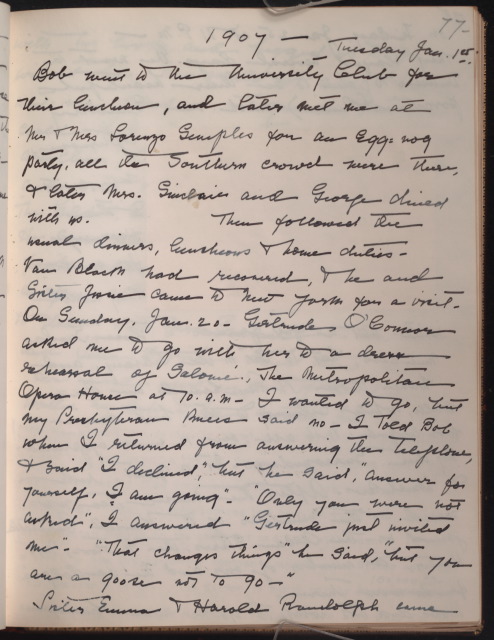 77-
1907 - Tuesday Jan. 1st.
Bob went to the University Club for
their luncheon, and later met me at
Mr & Mrs Lorenzo Semples for an Egg-nog
party, all the Southern crowd were there,
& later Mrs. Sinclair and George dined
with us. Then followed the
usual dinners, luncheons & home duties -
Van Black had recovered, & he and
Sister Josie came to New York for a visit.
On Sunday, Jan. 20 - Gertrude O'Connor
asked me to go with her to a dress
rehearsal of Salomé, The Metropolitan
Opera House at 10. a.m - I wanted to go, but
my Presbyterian said no - I told Bob
when I returned from answering the telephone,
& said "I declined," but he said, "answer for
yourself, I am going". "Only you were not
asked", I answered "Gertrude just invited
me". "That changes things" he said, "but you
are a goose not to go -"
Sister Emma & Harold Randolph came